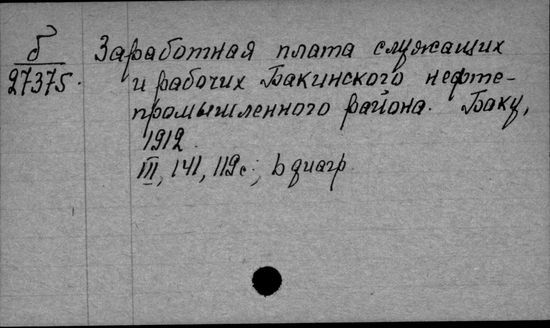 б
27375.
Заработная плата служащих
и рабочих Бакинского нефте-
промышленного района. Баку,
1912.
III, 141, 119с.; 6 диагр.